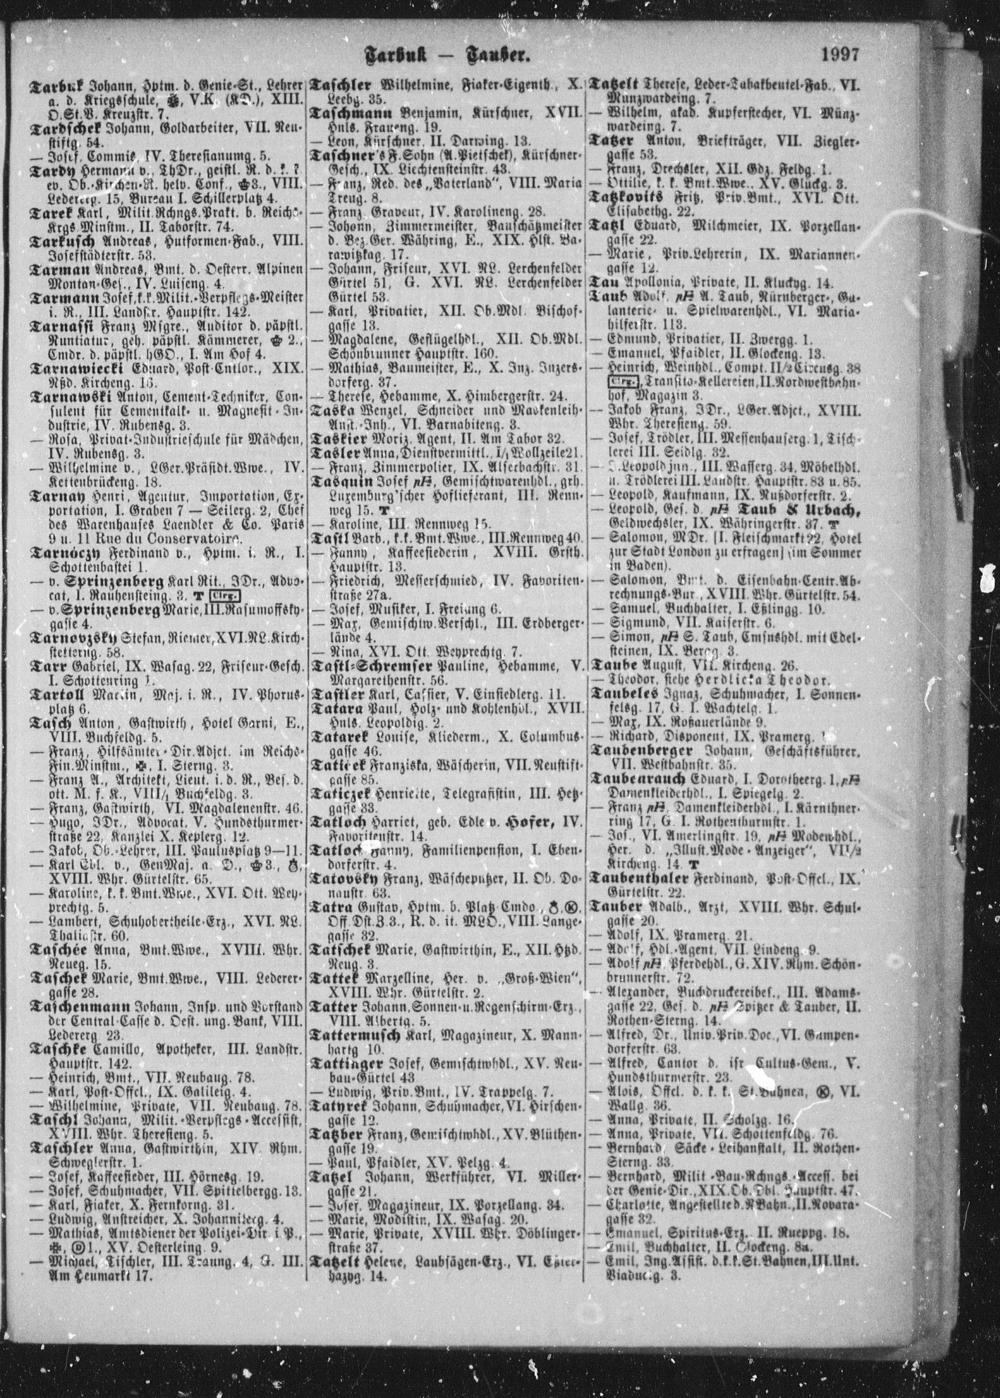 Tarbuk — Tauber.
1997
Tarbuk Johann, Hptm. d. Genie-St., Lehrer
a. d. Kriegsschule, V.K. (KD.), XIII.
O.St.V. Kreuzstr. 7.
Tardschek Johann, Goldarbeiter, VII. Neu-
stiftg. 54.
— Josef, Commis, IV. Theresianumg. 5.
Tardy Hermann v., ThDr., geistl. R. d. k. k.
ev. Ob.-Kirchen-R. helv. Conf., 3., VIII.
Ledererg. 15, Bureau I. Schillerplatz 4.
Tarek Karl, Milit.Rchngs.Prakt. b. Reichs-
Krgs.Minstm., II. Taborstr. 74.
Tarkusch Andreas, Hutformen-Fab., VIII.
Josefstädterstr. 53.
Tarman Andreas, Bmt. d. Oesterr. Alpinen
Montan-Ges., IV. Luiseng. 4.
Tarmann Josef, k.k. Milit.-Verpflegs-Meister
i. R., III. Landstr. Hauptstr. 142.
Tarnassi Franz Msgre., Auditor d. päpstl.
Nuntiatur, geh. päpstl. Kämmerer, 2.,
Cmdr. d. päpstl. hGO., I. Am Hof 4.
Tarnawiecki Eduard, Post-Cntlor., XIX.
Nßd. Kircheng. 16.
Tarnawski Anton, Cement-Techniker, Con-
sulent für Cementkalk- u. Magnesit-In-
dustrie, IV. Rubensg. 3.
— Rosa, Privat-Industrieschule für Mädchen,
IV. Rubensg. 3.
— Wilhelmine v., LGer.Präsidt.Wwe., IV.
Kettenbrückeng. 18.
Tarnay Henri, Agentur, Importation, Ex-
portation, I. Graben 7 — Seilerg. 2, Chef
des Warenhauses Laendler & Co. Paris
9 u. 11 Rue du Conservatoire.
Tarnóczy Ferdinand v., Hptm. i. R., I.
Schottenbastei 1.
— v. Sprinzenberg Karl Rit., JDr., Advo-
cat, I. Rauhensteing. 3. T Clrg.
— v. Sprinzenberg Marie, III. Rasumoffsky-
gasse 4.
Tarnovzsky Stefan, Riemer, XVI. NL. Kirch-
stetterng. 58.
Tarr Gabriel, IX. Wasag. 22, Friseur-Gesch.
I. Schottenring 1.
Tartoll Martin, Maj. i. R., IV. Phorus-
platz 6.
Tasch Anton, Gastwirth, Hotel Garni, E.,
VIII. Buchfeldg. 5.
— Franz, Hilfsämter-Dir.Adjct. im Reichs-
Fin.Minstm., I. Sterng. 3.
— Franz A., Architekt, Lieut. i. d. R., Bes. d.
ott. M. f. K., VIII/1 Buchfeldg. 3.
— Franz, Gastwirth, VI. Magdalenenstr. 46.
— Hugo, JDr., Advocat, V. Hundsthurmer-
straße 22, Kanzlei X. Keplerg. 12.
— Jakob, Ob.-Lehrer, III. Paulusplatz 9—11.
— Karl Edl. v., GenMaj. a. D., 3.,
XVIII. Whr. Gürtelstr. 65.
— Karoline, k. k. Bmt.Wwe., XVI. Ott. Wey-
prechtg. 5.
— Lambert, Schuhobertheile-Erz., XVI. NL.
Thaliastr. 60.
Taschée Anna, Bmt.Wwe., XVIII. Whr.
Neueg. 15.
Taschek Marie, Bmt.Wwe., VIII. Lederer-
gasse 28.
Taschenmann Johann, Insp. und Vorstand
der Central-Casse d. Oest. ung. Bank, VIII.
Ledererg. 23.
Taschke Camillo, Apotheker, III. Landstr.
Hauptstr. 142.
— Heinrich, Bmt., VII. Neubaug. 78.
— Karl, Post-Offcl., IX. Galileig. 4.
— Wilhelmine, Private, VII. Neubaug. 78.
Taschl Johann, Milit.-Verpflegs-Accessist,
XVIII. Whr. Theresieng. 5.
Taschler Anna, Gastwirthin, XIV. Rhm.
Schweglerstr. 1.
— Josef, Kaffeesieder, III. Hörnesg. 19.
— Josef, Schuhmacher, VII. Spittelbergg. 13.
— Karl, Fiaker, X. Fernkorng. 31.
— Ludwig, Anstreicher, X. Johanniterg. 4.
— Mathias, Amtsdiener der Polizei-Dir. i. P.,
1., XV. Oesterleing. 9.
— Michael, Tischler, III. Traung. 4, G. III.
Am Heumarkt 17.
Taschler Wilhelmine, Fiaker-Eigenth., X.
Leebg. 35.
Taschmann Benjamin, Kürschner, XVII.
Hnls. Fraueng. 19.
— Leon, Kürschner, II. Darwing. 13.
Taschner's F. Sohn (A. Pietschek), Kürschner-
Gesch., IX. Liechtensteinstr. 43.
— Franz, Red. des „Vaterland", VIII. Maria
Treug. 8.
— Franz, Graveur, IV. Karolineng. 28.
— Johann, Zimmermeister, Bauschätzmeister
d. Bez.Ger. Währing, E., XIX. Hlst. Ba-
rawitzkag. 17.
— Johann, Friseur, XVI. NL. Lerchenfelder
Gürtel 51, G. XVI. NL. Lerchenfelder
Gürtel 53.
— Karl, Privatier, XII. Ob.Mdl. Bischof-
gasse 13.
— Magdalene, Geflügelhdl., XII. Ob.Mdl.
Schönbrunner Hauptstr. 160.
— Mathias, Baumeister, E., X. Inz. Inzers-
dorferg. 37.
— Therese, Hebamme, X. Himbergerstr. 24.
Taska Wenzel, Schneider und Maskenleih-
Anst.-Inh., VI. Barnabiteng. 3.
Taskier Moriz, Agent, II. Am Tabor 32.
Tasler Anna, Dienstvermittl., I/1 Wollzeile 21.
— Franz, Zimmerpolier, IX. Alserbachstr. 31.
Tasquin Josef pH, Gemischtwarenhdl., grh.
Luxemburg'scher Hoflieferant, III. Renn-
weg 15. T
— Karoline, III. Rennweg 15.
Tastl Barb., k.k. Bmt.Wwe., III. Rennweg 40.
— Fanny, Kaffeesiederin, XVIII. Grsth.
Hauptstr. 13.
— Friedrich, Messerschmied, IV. Favoriten-
straße 27a.
— Josef, Musiker, I. Freiung 6.
— Max, Gemischtw.Verschl., III. Erdberger-
lände 4.
— Nina, XVI. Ott. Weyprechtg. 7.
Tastl-Schremser Pauline, Hebamme, V.
Margarethenstr. 56.
Tastler Karl, Cassier, V. Einsiedlerg. 11.
Tatara Paul, Holz- und Kohlenhdl., XVII.
Hnls. Leopoldig. 2.
Tatarek Louise, Kliederm., X. Columbus-
gasse 46.
Tatirek Franziska, Wäscherin, VII. Neustift-
gasse 85.
Taticzek Henriette, Telegrafistin, III. Hetz-
gasse 33.
Tatloch Harriet, geb. Edle v. Hofer, IV.
Favoritenstr. 14.
Tatloc Fanny, Familienpension, I. Eben-
dorferstr. 4.
Tatovsky Franz, Wäscheputzer, II. Ob. Do-
naustr. 63.
Tatra Gustav, Hptm. b. Platz-Cmdo.,
Off.Dst.Z. 3., R. d. it. MLO., VIII. Lange-
gasse 32.
Tatschek Marie, Gastwirthin, E., XII. Htzd.
Neug. 3.
Tattek Marzelline, Her. v. „Groß-Wien",
XVIII. Whr. Gürtelstr. 2.
Tatter Johann, Sonnen-u.Regenschirm-Erz.,
VIII. Albertg. 5.
Tattermusch Karl, Magazineur, X. Mann-
hartg. 10.
Tattinger Josef, Gemischtwhdl., XV. Neu-
bau-Gürtel 43
— Ludwig, Priv.Bmt., IV. Trappelg. 7.
Tatyrek Johann, Schuhmacher, VI. Hirschen-
gasse 12.
Tatzber Franz, Gemischtwhdl., XV. Blüthen-
gasse 19.
— Paul, Pfaidler, XV. Pelzg. 4.
Tatzel Johann, Werkführer, VI. Miller-
gasse 21.
— Josef, Magazineur, IX. Porzellang. 34.
— Marie, Modistin, IX. Wasag. 20.
— Marie, Private, XVIII. Whr. Döblinger-
straße 37.
Tatzelt Helene, Laubsägen-Erz., VI. Ester-
hazyg. 14.
Tatzelt Therese, Leder-Tabakbeutel-Fab., VI.
Münzwardeing. 7.
— Wilhelm, akad. Kupferstecher, VI. Münz-
wardeing. 7.
Tatzer Anton, Briefträger, VII. Ziegler-
gasse 53.
— Franz, Drechsler, XII. Gdz. Feldg. 1.
— Ottilie, k. k. Bmt.Wwe., XV. Gluckg. 3.
Tatzkovits Fritz, Priv.Bmt., XVI. Ott.
Elisabethg. 22.
Tatzl Eduard, Milchmeier, IX. Porzellan-
gasse 22.
— Marie, Priv.Lehrerin, IX. Mariannen-
gasse 12.
Tau Apollonia, Private, II. Kluckyg. 14.
Taub Adolf, pH A. Taub, Nürnberger-, Ga-
lanterie- u. Spielwarenhdl., VI. Maria-
hilferstr. 113.
— Edmund, Privatier, II. Zwergg. 1.
— Emanuel, Pfaidler, II. Glockeng. 13.
— Heinrich, Weinhdl., Compt. II/2 Circusg. 38
Clrg., Transito-Kellereien, II. Nordwestbahn-
hof, Magazin 3.
— Jakob Franz, JDr., LGer.Adjct., XVIII.
Whr. Theresieng. 59.
— Josef, Trödler, III. Messenhauserg. 1, Tisch-
lerei III. Seidlg. 32.
— Leopold jun., III. Wasserg. 34, Möbelhdl.
u. Trödlerei III. Landstr. Hauptstr. 83 u. 85.
— Leopold, Kaufmann, IX. Nußdorferstr. 2.
— Leopold, Ges. d. pH Taub & Urbach,
Geldwechsler, IX. Währingerstr. 37. T
— Salomon, MDr. (I. Fleischmarkt 22, Hotel
zur Stadt London zu erfragen) (im Sommer
in Baden).
— Salomon, Bmt. d. Eisenbahn-Centr.Ab-
rechnungs-Bur., XVIII. Whr. Gürtelstr. 54.
— Samuel, Buchhalter, I. Eßlingg. 10.
— Sigmund, VII. Kaiserstr. 6.
— Simon, pH S. Taub, Cmsnshdl. mit Edel-
steinen, IX. Bergg. 3.
Taube August, VII. Kircheng. 26.
— Theodor, siehe Herdlicka Theodor.
Taubeles Ignaz, Schuhmacher, I. Sonnen-
felsg. 17, G. I. Wachtelg. 1.
— Max, IX. Roßauerlände 9.
— Richard, Disponent, IX. Pramerg.
Taubenberger Johann, Geschäftsführer,
VII. Westbahnstr. 35.
Taubenrauch Eduard, I. Dorotheerg. 1, pH
Damenkleiderhdl., I. Spiegelg. 2.
— Franz pH, Damenkleiderhdl., I. Kärnthner-
ring 17, G. I. Rothenthurmstr. 1.
— Jos., VI. Amerlingstr. 19, pH Modewhdl.,
Her. d. „Illust. Mode-Anzeiger", VII/2
Kircheng. 14. T
Taubenthaler Ferdinand, Post-Offcl., IX.
Gürtelstr. 22.
Tauber Adalb., Arzt, XVIII. Whr. Schul-
gasse 20.
— Adolf, IX. Pramerg. 21.
— Adolf, Hdl.-Agent, VII. Lindeng. 9.
— Adolf pH, Pferdehdl., G. XIV. Rhm. Schön-
brunnerstr. 72.
— Alexander, Buchdruckereibes., III. Adams-
gasse 22, Ges. d. pH Spitzer & Tauber, II.
Rothen-Sterng. 14.
— Alfred, Dr., Univ.Priv.Doc., VI. Gumpen-
dorferstr. 63.
— Alfred, Cantor d. isr. Cultus-Gem., V.
Hundsthurmerstr. 23.
— Alois, Offcl. d. k. k. St.Bahnen, VI.
Wallg. 36.
— Anna, Private, II. Scholzg. 16.
— Anna, Private, VII. Schottenfeldg. 76.
— Bernhard, Säcke-Leihanstalt, II. Rothen-
Sterng. 33.
— Bernhard, Milit.-Bau-Rchngs.-Access. bei
der Genie-Dir., XIX. Ob. Dbl. Hauptstr. 47.
— Charlotte, Angestellte d. NBahn., II. Novara-
gasse 32.
— Emanuel, Spiritus-Erz., II. Rueppg. 18.
— Emil, Buchhalter, II. Glockeng. 8a.
— Emil, Ing.Assist. d.k.k. St.Bahnen, III. Unt.
Viaductg. 3.